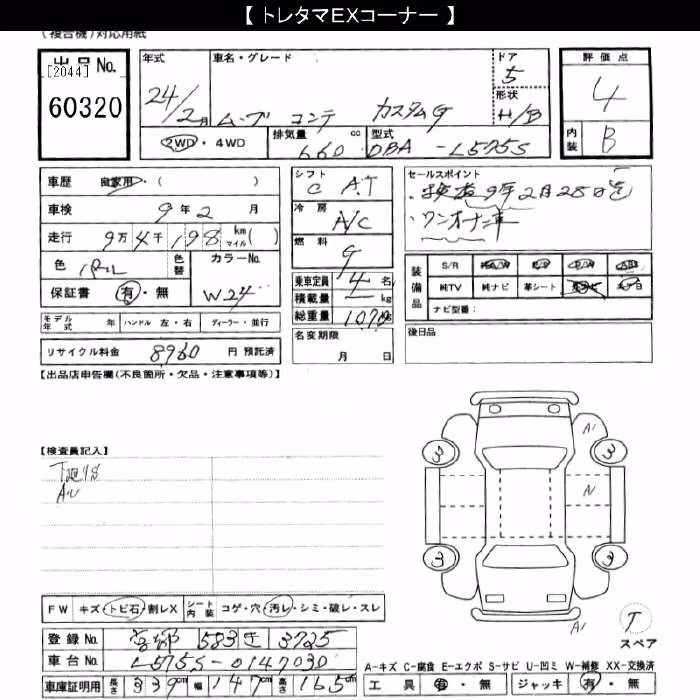 【 トレタマEXコーナー 】
(複合機)対応用紙
出品No. [2044] 60320
年式 24/2月
車名・グレード ムーブ コンテ カスタムG
ドア 5
形状 H/B
評価点 4
内装 B
2WD ・ 4WD
排気量 660 cc
型式 DBA-L575S
車歴 自家用・( )
シフト C AT
セールスポイント
・車検 9年2月28日迄
・ワンオーナー車
車検 9年 2月
冷房 A/C
走行 9万4千198 km マイル ( )
燃料 G
色 パール 色替
カラーNo. W24
保証書 有・無
乗車定員 4名
積載量 kg
総重量 1070
装備品 S/R A/W P/S P/W ABS
純TV 純ナビ 革シート
ナビ型番:
モデル年式 年 ハンドル 左・右 ディーラー・並行
名変期限 月 日
後日品
リサイクル料金 8960 円 預託済
【出品店申告欄(不良箇所・欠品・注意事項等)】
【検査員記入】
下廻りS
A
A1
3 3
3 3
A1
T
スペア
FW キズ・トビ石・割レX シート内装 コゲ・穴・汚レ・シミ・破レ・スレ
登録No. 583 3725
車台No. L575S-0147030
車庫証明用 長さ 339cm 幅 147cm 高さ 165cm
A-キズ C-腐食 E-エクボ S-サビ U-凹ミ W-補修 XX-交換済
工具 有・無 ジャッキ 有・無